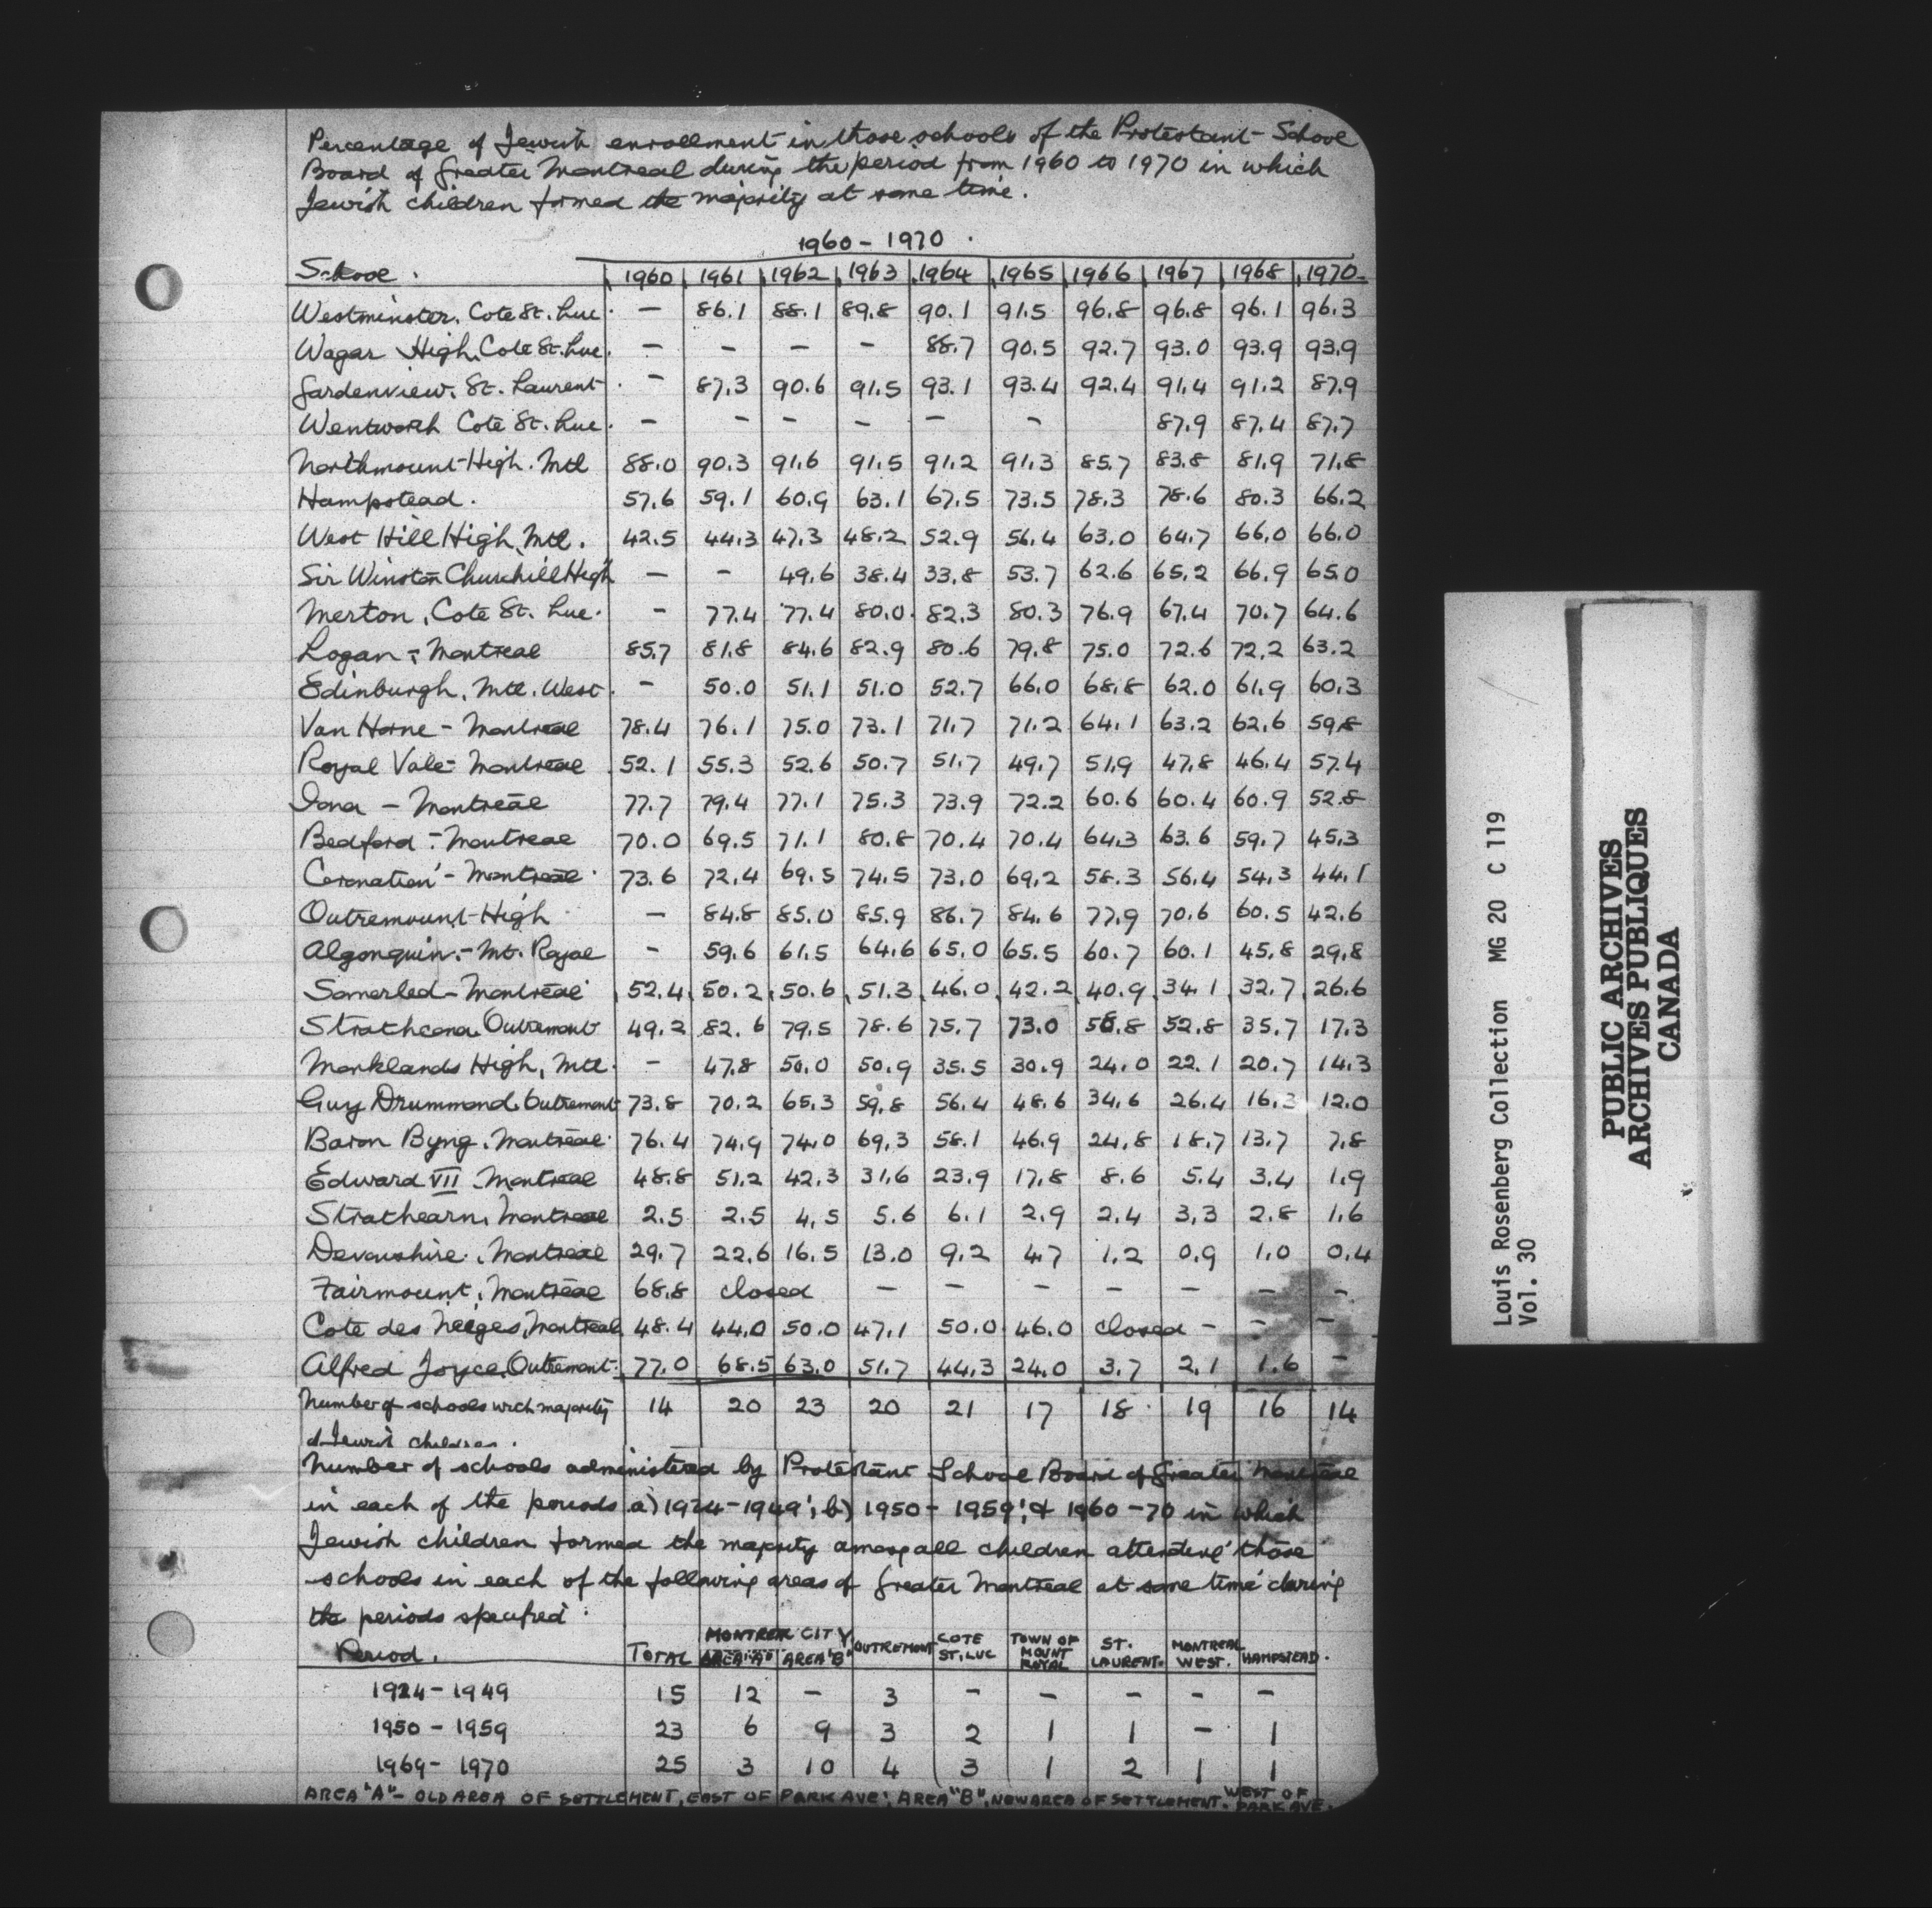 Percentage of Jewish enrollment in those schools of the Protestant School
Board of Greater Montreal during the period from 1960 to 1970 in which
Jewish children formed the majority at some time.
1960 - 1970.
School. 1960 1961 1962 1963 1964 1965 1966 1967 1968 1970
Westminster. Cote St. Luc. — 86.1 88.1 89.8 90.1 91.5 96.8 96.8 96.1 96.3
Wagar High, Cote St. Luc. — — — — 88.7 90.5 92.7 93.0 93.9 93.9
Gardenview. St. Laurent. — 87.3 90.6 91.5 93.1 93.4 92.4 91.4 91.2 87.9
Wentworth Cote St. Luc. — — — — — — 87.9 87.4 87.7
Northmount High. Mtl 88.0 90.3 91.6 91.5 91.2 91.3 85.7 83.8 81.9 71.8
Hampstead. 57.6 59.1 60.9 63.1 67.5 73.5 78.3 78.6 80.3 66.2
West Hill High, Mtl. 42.5 44.3 47.3 48.2 52.9 56.4 63.0 64.7 66.0 66.0
Sir Winston Churchill High — — 49.6 38.4 33.8 53.7 62.6 65.2 66.9 65.0
Merton, Cote St. Luc. — 77.4 77.4 80.0 82.3 80.3 76.9 67.4 70.7 64.6
Logan - Montreal 85.7 81.8 84.6 82.9 80.6 79.8 75.0 72.6 72.2 63.2
Edinburgh, Mtl. West. — 50.0 51.1 51.0 52.7 66.0 68.8 62.0 61.9 60.3
Van Horne - Montreal 78.4 76.1 75.0 73.1 71.7 71.2 64.1 63.2 62.6 59.8
Royal Vale - Montreal 52.1 55.3 52.6 50.7 51.7 49.7 51.9 47.8 46.4 57.4
Iona - Montreal 77.7 79.4 77.1 75.3 73.9 72.2 60.6 60.4 60.9 52.8
Bedford - Montreal 70.0 69.5 71.1 80.8 70.4 70.4 64.3 63.6 59.7 45.3
Coronation - Montreal 73.6 72.4 69.5 74.5 73.0 69.2 58.3 56.4 54.3 44.1
Outremount High — 84.8 85.0 85.9 86.7 84.6 77.9 70.6 60.5 42.6
Algonquin. - Mt. Royal — 59.6 61.5 64.6 65.0 65.5 60.7 60.1 45.8 29.8
Somerled - Montreal 52.4 50.2 50.6 51.3 46.0 42.2 40.9 34.1 32.7 26.6
Strathcona Outremont 49.2 82.6 79.5 78.6 75.7 73.0 58.8 52.8 35.7 17.3
Monklands High, Mtl. — 47.8 50.0 50.9 35.5 30.9 24.0 22.1 20.7 14.3
Guy Drummond. Outremont 73.8 70.2 65.3 59.8 56.4 48.6 34.6 26.4 16.3 12.0
Baron Byng. Montreal. 76.4 74.9 74.0 69.3 58.1 46.9 24.8 18.7 13.7 7.8
Edward VII Montreal 48.8 51.2 42.3 31.6 23.9 17.8 8.6 5.4 3.4 1.9
Strathearn. Montreal 2.5 2.5 4.5 5.6 6.1 2.9 2.4 3.3 2.8 1.6
Devonshire. Montreal 29.7 22.6 16.5 13.0 9.2 4.7 1.2 0.9 1.0 0.4
Fairmount, Montreal 68.8 closed — — — — — — —
Cote des Neiges, Montreal 48.4 44.0 50.0 47.1 50.0 46.0 closed — — —
Alfred Joyce, Outremont. 77.0 68.5 63.0 51.7 44.3 24.0 3.7 2.1 1.6 —
Number of schools with majority 14 20 23 20 21 17 18 19 16 14
of Jewish children.
Number of schools administered by Protestant School Board of Greater Montreal
in each of the periods a) 1924-1949; b) 1950 - 1959; & 1960 - 70 in which
Jewish children formed the majority among all children attending those
schools in each of the following areas of Greater Montreal at some time during
the periods specified.
Period. TOTAL MONTREAL CITY AREA "A" AREA "B" OUTREMONT COTE ST. LUC TOWN OF MOUNT ROYAL ST. LAURENT. MONTREAL WEST. HAMPSTEAD.
1924 - 1949 15 12 — 3 — — — — —
1950 - 1959 23 6 9 3 2 1 1 — 1
1969 - 1970 25 3 10 4 3 1 2 1 1
AREA "A" - OLD AREA OF SETTLEMENT, EAST OF PARK AVE; AREA "B", NEW AREA OF SETTLEMENT. WEST OF PARK AVE.
Louis Rosenberg Collection MG 20 C 119
Vol. 30
PUBLIC ARCHIVES
ARCHIVES PUBLIQUES
CANADA